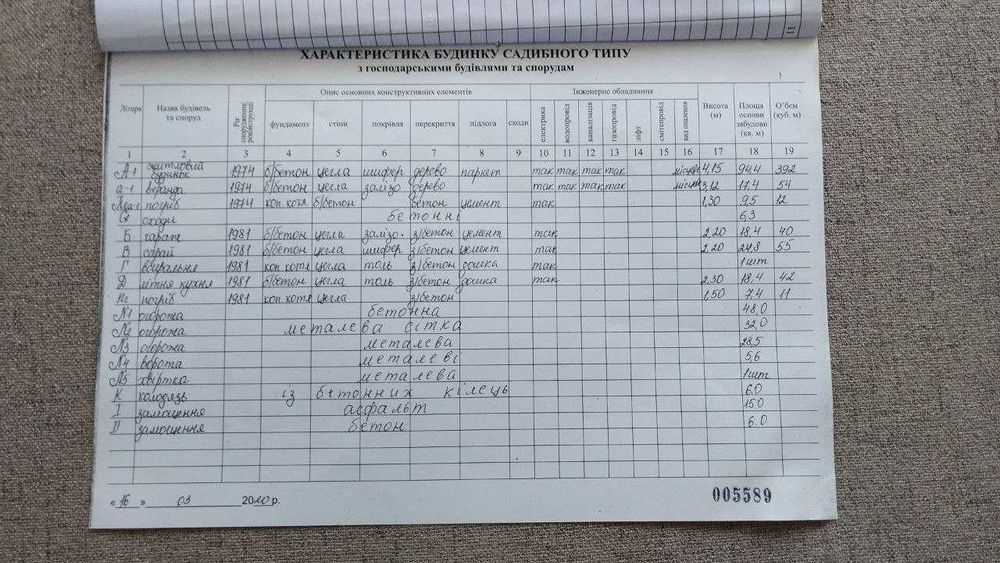 ХАРАКТЕРИСТИКА БУДИНКУ САДИБНОГО ТИПУ
з господарськими будівлями та спорудам
Літера Назва будівель та споруд Рік спорудження реконструкції Опис основних конструктивних елементів Інженерне обладнання Висота (м) Площа основи забудови (кв. м) О'бєм (куб. м)
фундамент стіни покрівля перекриття підлога сходи електрика водопровід каналізація газопровід ліфт сміттєпровід від опалення
1 2 3 4 5 6 7 8 9 10 11 12 13 14 15 16 17 18 19
А-1 житловий будинок 1974 б/бетон цегла шифер дерево паркет так так так так місцеве 4,15 94,4 392
а-1 веранда 1974 б/бетон цегла залізо дерево так так так так 3,12 17,4 54
погріб 1974 б/бетон бетон цемент так 1,30 9,5 12
сходи бетонні 6,3
Б гараж 1981 б/бетон цегла залізо. з/бетон цемент так 2,20 18,4 40
В сарай 1981 б/бетон цегла шифер з/бетон цемент так 2,20 24,8 55
Г вбиральня 1981 цегла толь з/бетон дошка так 1шт
Д літня кухня 1981 б/бетон цегла толь з/бетон дошка так 2,30 18,4 42
погріб 1981 цегла з/бетон 1,50 7,4 11
№1 огорожа бетонна 48,0
№2 огорожа металева сітка 32,0
№3 огорожа металева 28,5
№4 ворота металеві 5,6
№5 хвіртка металева 1шт
К колодязь із бетонних кілець 6,0
І замощення асфальт 15,0
ІІ замощення бетон 6,0
« 16 » 03 2010 р.
005589